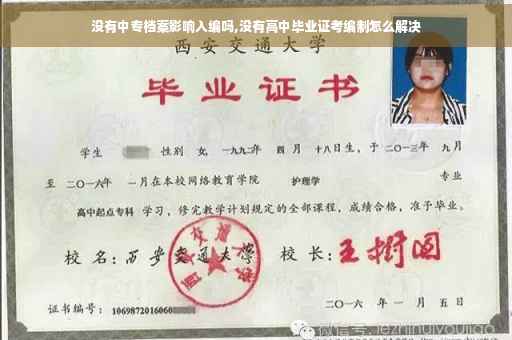 没有中专档案影响入编吗,没有高中毕业证考编制怎么解决
西安交通大学
毕业证书
学生 性别 女,一九九二年 四月 十八日生,于二〇一三年 九月
至 二〇一六年 一月在本校网络教育学院 护理学 专业
高中起点专科 学习,修完教学计划规定的全部课程,成绩合格,准予毕业。
校名:西安交通大学 校长:王树国
西安交通大学
证书编号:1069872016060
二〇一六年 一月 五日
微信号:jezhihuiyoujiao